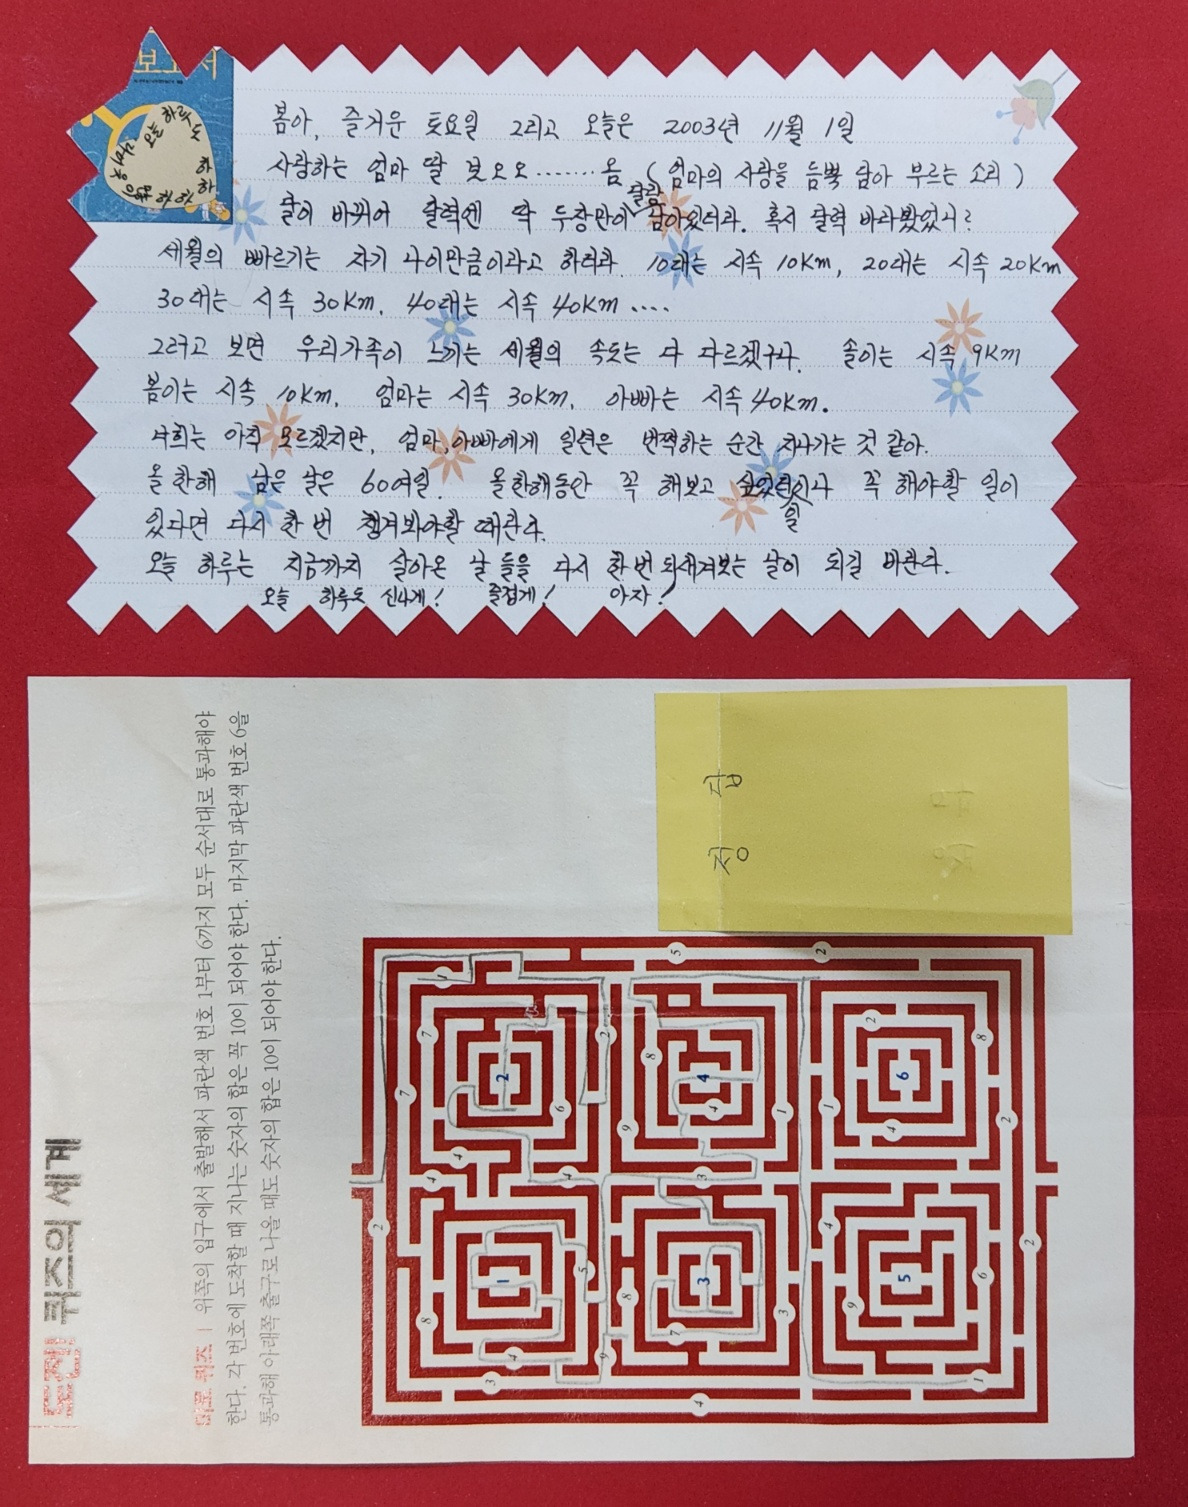 보고서
오늘 하루도
하하하하
봄아, 즐거운 토요일 그리고 오늘은 2003년 11월 1일
사랑하는 엄마 딸 보오오.......옴 (엄마의 사랑을 듬뿍 담아 부르는 소리)
달이 바뀌어 달력엔 딱 두장만이 달랑 남아있더라. 혹시 달력 바라봤었니?
세월의 빠르기는 자기 나이만큼이라고 하더라. 10대는 시속 10Km, 20대는 시속 20Km
30대는 시속 30Km, 40대는 시속 40Km ....
그리고 보면 우리가족이 느끼는 세월의 속도는 다 다르겠구나. 솔이는 시속 9Km
봄이는 시속 10Km, 엄마는 시속 30Km, 아빠는 시속 40Km.
너희는 아직 모르겠지만, 엄마, 아빠에게 일년은 번쩍하는 순간 지나가는 것 같아.
올 한해 남은 날은 60여일. 올한해동안 꼭 해보고 싶었던 일이나 꼭 해야할 일이
있다면 다시 한 번 챙겨봐야할 때란다.
오늘 하루는 지금까지 살아온 날 들을 다시 한번 되새겨보는 날이 되길 바란다.
오늘 하루도 신나게! 즐겁게! 아자!
도전! 퀴즈의 세계
미로 퀴즈 | 위쪽의 입구에서 출발해서 파란색 번호 1부터 6까지 모두 순서대로 통과해야
한다. 각 번호에 도착할 때 지나는 숫자의 합은 꼭 10이 되어야 한다. 마지막 파란색 번호 6을
통과해 아래쪽 출구로 나올 때도 숫자의 합은 10이 되어야 한다.
정답
2 7 4 5 2
3 8 4 4 7 1
1 2
4 6 5 4 6 2
8 9 8
3 7 3 4 4
3 1
9 4 1 2
5 6
1 6 4 8
2 2